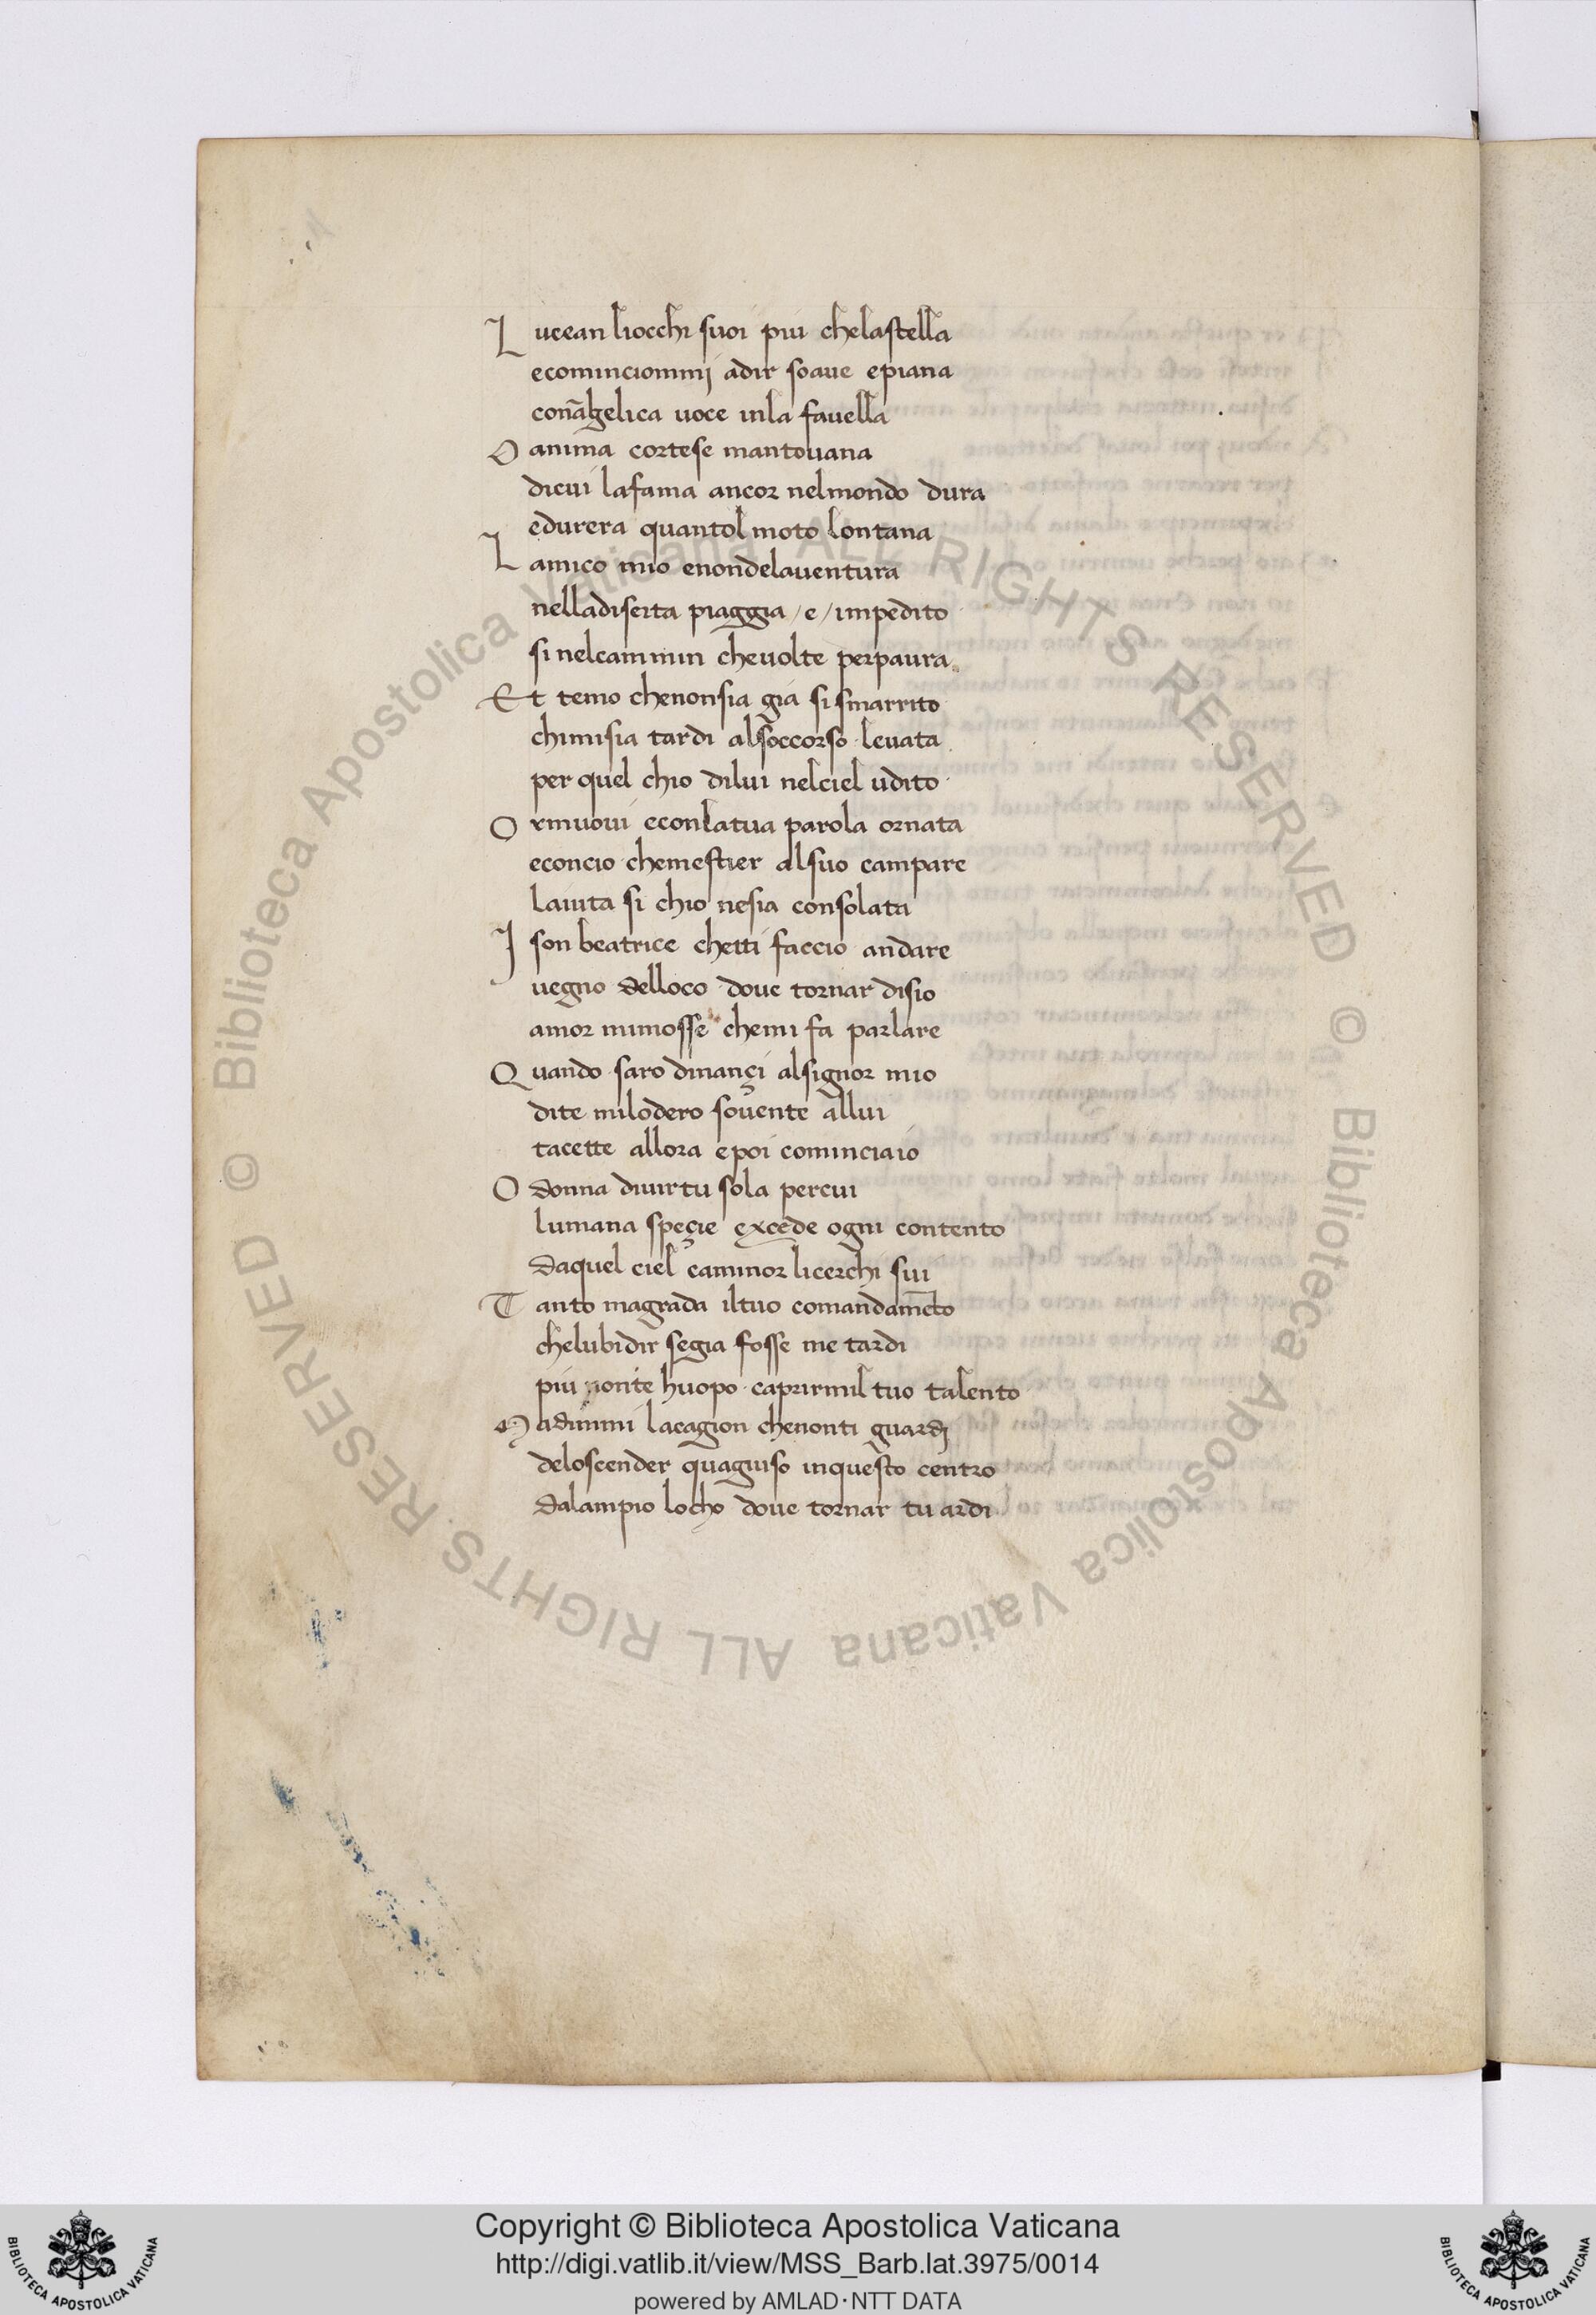 L ucean liocchi suoi piu chelastella
ecominciommj adir soaue epiana
conãhgelica uoce inla fauella
O anima cortese mantouana
dicui lafama ancor nelmondo dura
edurera quantol moto lontana
L amico mio enondelauentura
nelladiserta piaggia /e/ impedito
si nelcammin cheuolte perpaura
Et temo chenonsia gia si smarrito
chimisia tardi alsoccorso leuata
per quel chio dilui nelciel udito
O rmuoui econlatua parola ornata
econcio chemestier alsuo campare
laiuta si chio nesia consolata
I son beatrice chetti faccio andare
uegno delloco doue tornar disio
amor mimosse chemi fa parlare
Q uando saro dinançi alsignor mio
dite milodero souente allui
tacette allora epoi cominciaio
O donna diuirtu sola percui
lumana speçie excede ogni contento
daquel ciel caminor licerchi sui
T anto magrada iltuo comandam̃eto
chelubidir segia fosse me tardi
piu nonte huopo caprirmil tuo talento
M adimmi lacagion chenonti guardj
deloscender quaguiso inquesto centro
dalampio locho doue tornar tu ardi
© Biblioteca Apostolica Vaticana ALL RIGHTS RESERVED © Biblioteca Apostolica Vaticana ALL RIGHTS RESERVED
Copyright © Biblioteca Apostolica Vaticana
http://digi.vatlib.it/view/MSS_Barb.lat.3975/0014
powered by AMLAD·NTT DATA
BIBLIOTECA APOSTOLICA VATICANA
BIBLIOTECA APOSTOLICA VATICANA